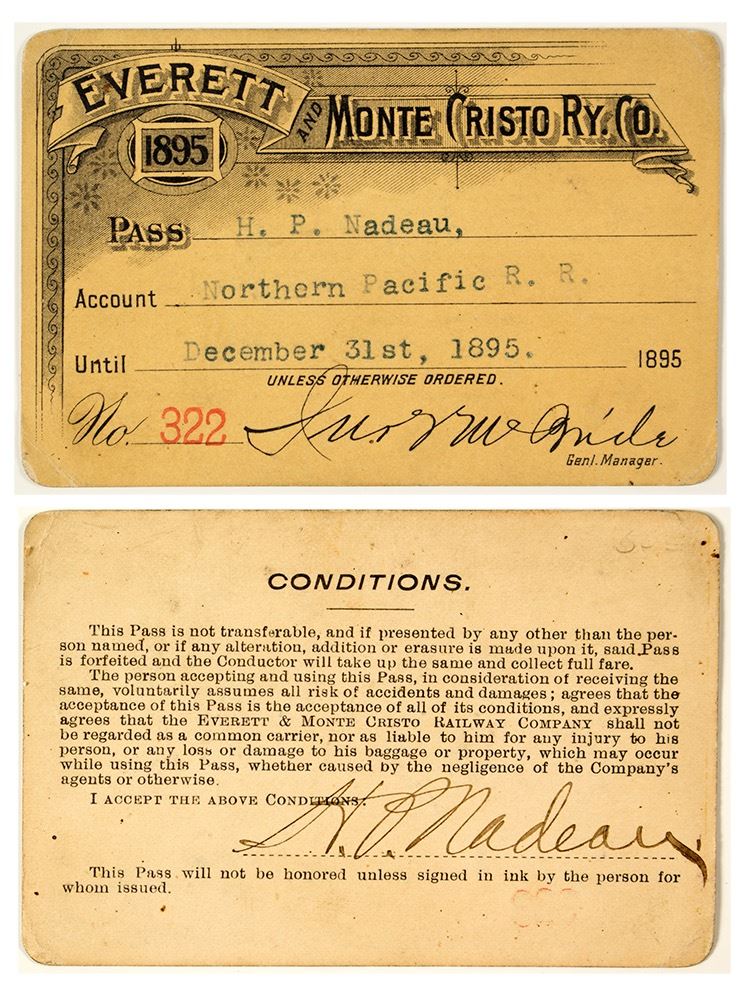 EVERETT AND MONTE CRISTO RY. CO.
1895
PASS H. P. Nadeau,
Account Northern Pacific R. R.
Until December 31st, 1895. 1895
UNLESS OTHERWISE ORDERED.
No. 322 Jno. J. McBride
Genl. Manager.
CONDITIONS.
This Pass is not transferable, and if presented by any other than the per-
son named, or if any alteration, addition or erasure is made upon it, said Pass
is forfeited and the Conductor will take up the same and collect full fare.
The person accepting and using this Pass, in consideration of receiving the
same, voluntarily assumes all risk of accidents and damages; agrees that the
acceptance of this Pass is the acceptance of all of its conditions, and expressly
agrees that the EVERETT & MONTE CRISTO RAILWAY COMPANY shall not
be regarded as a common carrier, nor as liable to him for any injury to his
person, or any loss or damage to his baggage or property, which may occur
while using this Pass, whether caused by the negligence of the Company's
agents or otherwise.
I ACCEPT THE ABOVE CONDITIONS:
H. P. Nadeau,
This Pass will not be honored unless signed in ink by the person for
whom issued.